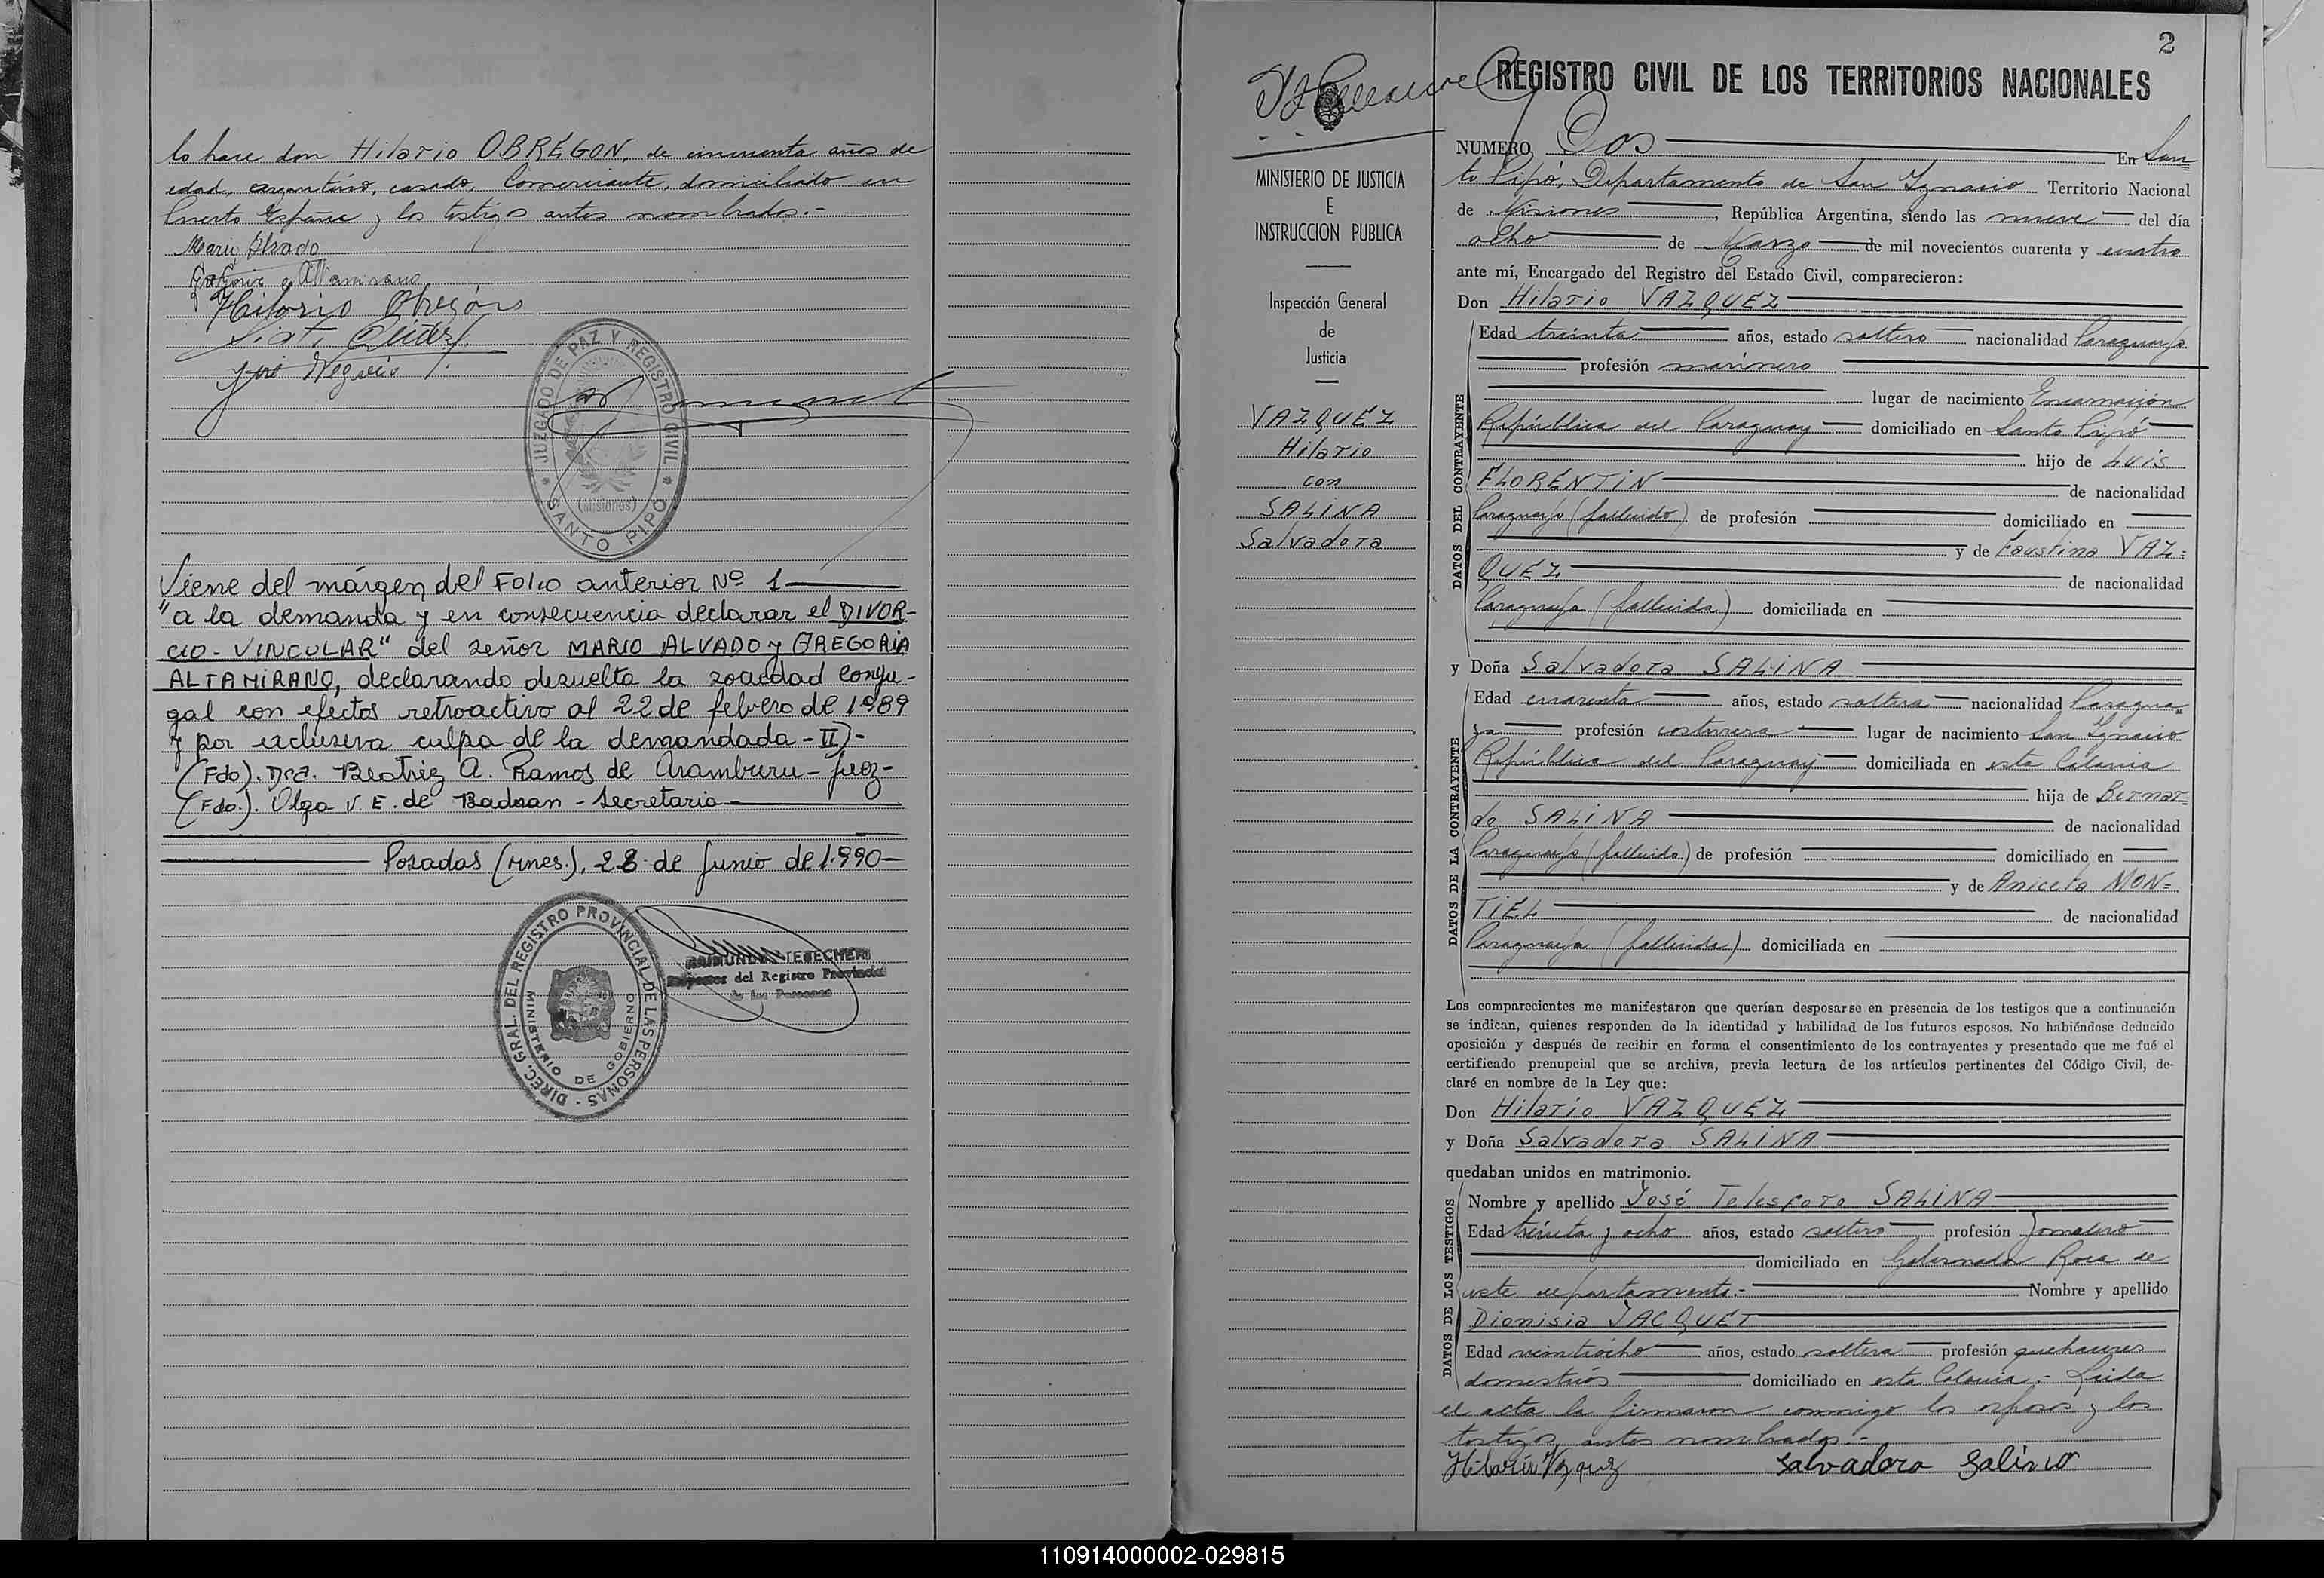 lo hace don Hilario OBREGON, de cincuenta años de
edad, argentino, casado, Comerciante, domiciliado en
Puerto España y los testigos antes nombrados.-
Mario Alvado
Gregoria Altamirano
Hilario Obregón
José
JUZGADO DE PAZ Y REGISTRO CIVIL
(Misiones)
* SANTO PIPÓ *
Viene del márgen del Folio anterior Nº 1
"a la demanda y en consecuencia declarar el DIVOR-
CIO-VINCULAR" del señor MARIO ALVADO y GREGORIA
ALTAMIRANO, declarando disuelta la sociedad conyu-
gal con efectos retroactivo al 22 de febrero de 1989
y por exclusiva culpa de la demandada-II)-
(Fdo). Dra. Beatriz A. Ramos de Aramburu-juez-
(Fdo). Olga V. E. de Badaan - Secretaria
Posadas (mnes.), 28 de Junio de 1.990
DIREC. GRAL. DEL REGISTRO PROVINCIAL DE LAS PERSONAS -
MINISTERIO DE GOBIERNO
del Registro Provincial
de las Personas
2
REGISTRO CIVIL DE LOS TERRITORIOS NACIONALES
MINISTERIO DE JUSTICIA
E
INSTRUCCION PUBLICA
Inspección General
de
Justicia
VAZQUEZ
Hilario
con
SALINA
Salvadora
NUMERO Dos En San
to Pipó, Departamento de San Ignacio Territorio Nacional
de Misiones, República Argentina, siendo las nueve del día
ocho de Marzo de mil novecientos cuarenta y cuatro
ante mí, Encargado del Registro del Estado Civil, comparecieron:
Don Hilario VAZQUEZ
DATOS DEL CONTRAYENTE
Edad treinta años, estado soltero nacionalidad Paraguayo
profesión marinero
lugar de nacimiento Encarnación
República del Paraguay domiciliado en Santo Pipó
hijo de Luis
FLORENTIN de nacionalidad
Paraguayo (fallecido) de profesión domiciliado en
y de Faustina VAZ=
QUEZ de nacionalidad
Paraguaya (fallecida) domiciliada en
y Doña Salvadora SALINA
DATOS DE LA CONTRAYENTE
Edad cuarenta años, estado soltera nacionalidad Paragua
ya profesión costurera lugar de nacimiento San Ignacio
República del Paraguay domiciliada en esta Colonia
hija de Bernar=
do SALINA de nacionalidad
Paraguayo (fallecido) de profesión domiciliado en
y de Aniceta MON=
TIEL de nacionalidad
Paraguaya (fallecida) domiciliada en
Los comparecientes me manifestaron que querían desposarse en presencia de los testigos que a continuación
se indican, quienes responden de la identidad y habilidad de los futuros esposos. No habiéndose deducido
oposición y después de recibir en forma el consentimiento de los contrayentes y presentado que me fué el
certificado prenupcial que se archiva, previa lectura de los artículos pertinentes del Código Civil, de-
claré en nombre de la Ley que:
Don Hilario VAZQUEZ
y Doña Salvadora SALINA
quedaban unidos en matrimonio.
DATOS DE LOS TESTIGOS
Nombre y apellido José Telesforo SALINA
Edad treinta y ocho años, estado soltero profesión Jornalero
domiciliado en Gobernador Roca de
este departamento.- Nombre y apellido
Dionisia JACQUET
Edad veintiocho años, estado soltera profesión quehaceres
domésticos domiciliado en esta Colonia.- Leida
el acta la firmaron conmigo los esposos y los
testigos antes nombrados.-
Hilario Vazquez Salvadora Salina
110914000002-029815